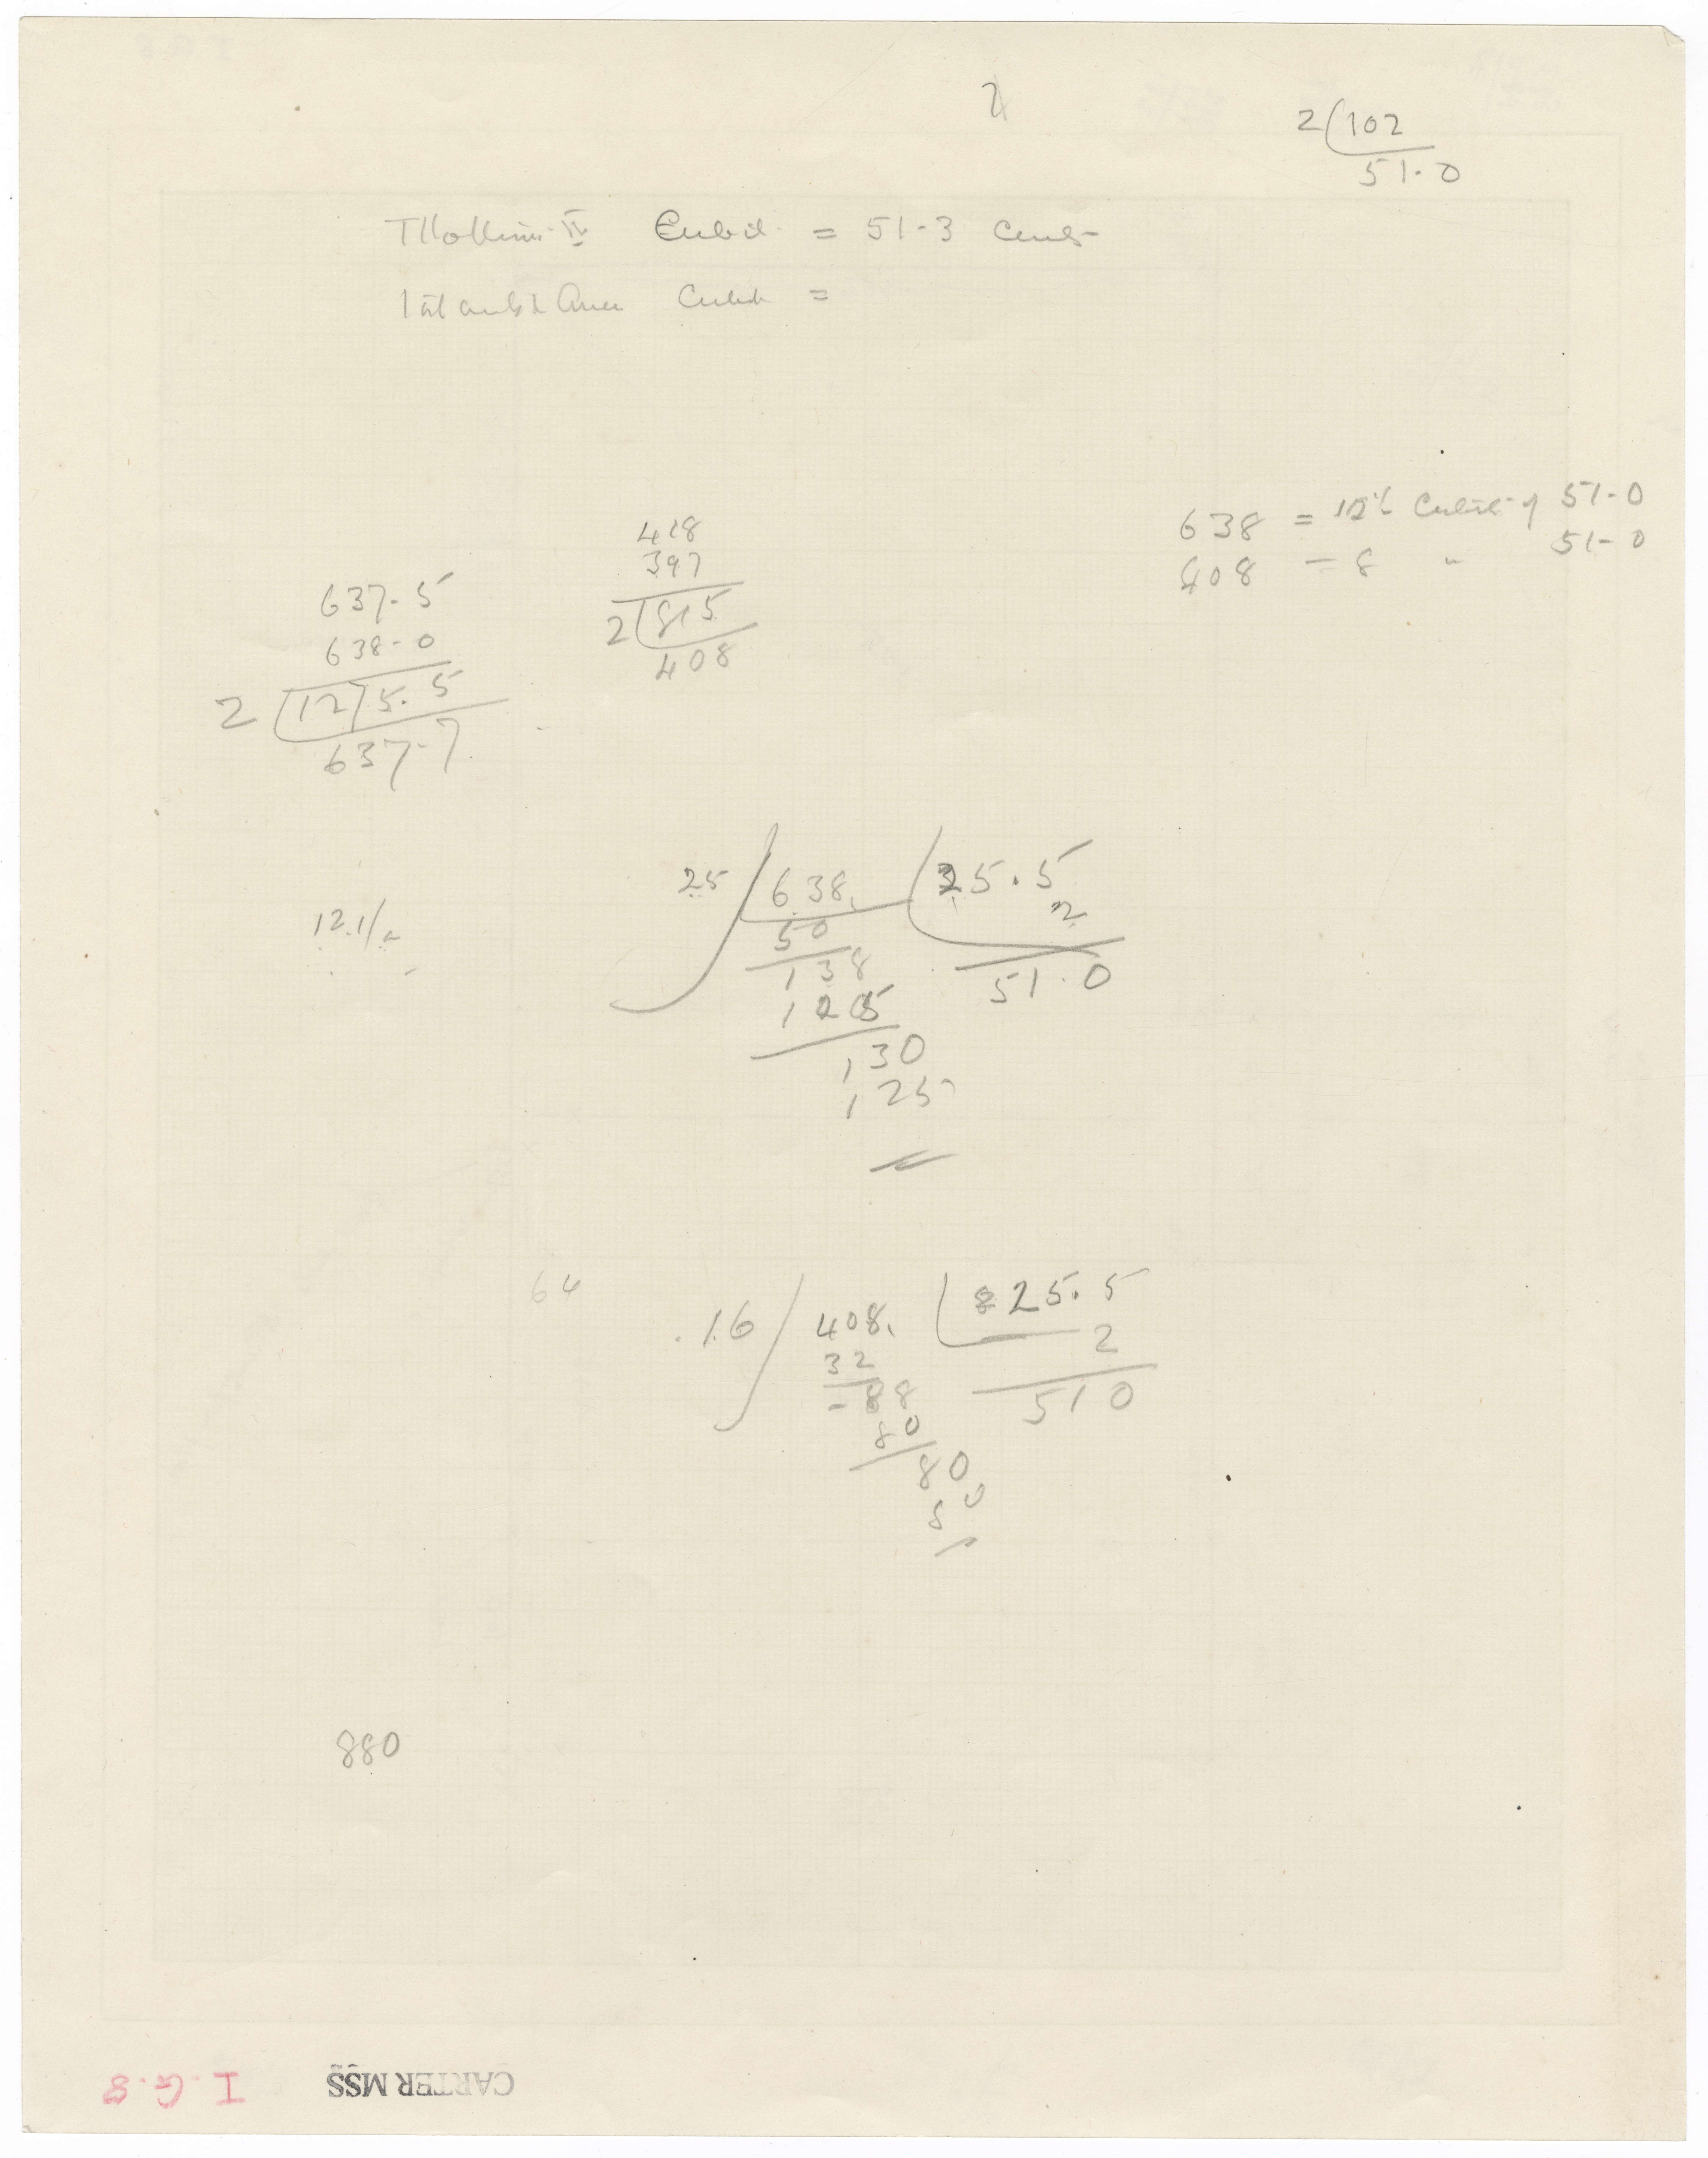 2
2 102
51.0
Thothmes IV Cubit = 51-3 Cents
Tutankhamen Cubit =
638 = 12½ Cubits of 51-0
408 = 8 " 51-0
418
397
2 815
408
637-5
638-0
2 1275.5
637-7
12.1/2
25 638. 25.5
2
50
138
51.0
125
130
125
64
.16 408. 25.5
32
2
88
510
80
80
80
880
CARTER MSS
I. G. 8